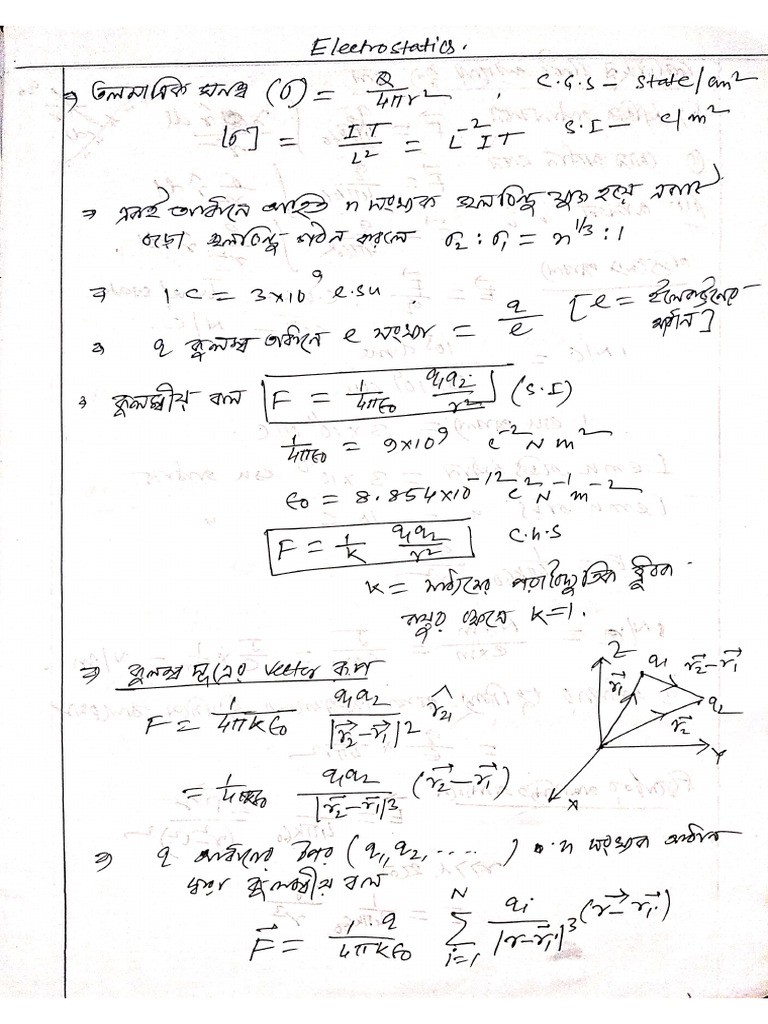 Electrostatics.
⇒ তলমাত্রিক ঘনত্ব (σ) = Q/4πr² , C.G.S – state/cm²
[σ] = IT/L² = L⁻²IT S.I – c/m²
⇒ একই আধানে আহিত n সংখ্যক জলবিন্দু যুক্ত হয়ে একটি
বড়ো জলবিন্দু গঠন করলে σ₂ : σ₁ = n^1/3 : 1
⇒ 1 C = 3×10⁹ e.s.u.
⇒ q কুলম্ব আধানে e সংখ্যা = q/e [e = ইলেকট্রনের আধান]
⇒ কুলম্বীয় বল F = 1/4πϵ₀ q₁q₂/r² (S.I)
1/4πϵ₀ = 9×10⁹ c⁻²Nm²
ϵ₀ = 8.854×10⁻¹² c²N⁻¹m⁻²
F = 1/k q₁q₂/r² C.G.S
k = মাধ্যমের পরাবৈদ্যুতিক ধ্রুবক
বায়ুর ক্ষেত্রে k=1.
⇒ কুলম্ব সূত্রের vector রূপ
F = 1/4πkϵ₀ q₁q₂/|r⃗₂–r⃗₁|² r̂₂₁
= 1/4πkϵ₀ q₁q₂/|r⃗₂–r⃗₁|³ (r⃗₂–r⃗₁)
Z q₁ r⃗₂–r⃗₁
r⃗₁ q₂
r⃗₂
Y
X
⇒ q আধানের উপর (q₁,q₂,.....) n সংখ্যক আধান
দ্বারা কুলম্বীয় বল
F⃗ = 1·q/4πkϵ₀ N∑i=1 qi/|r–r⃗i|³ (r⃗–r⃗i)